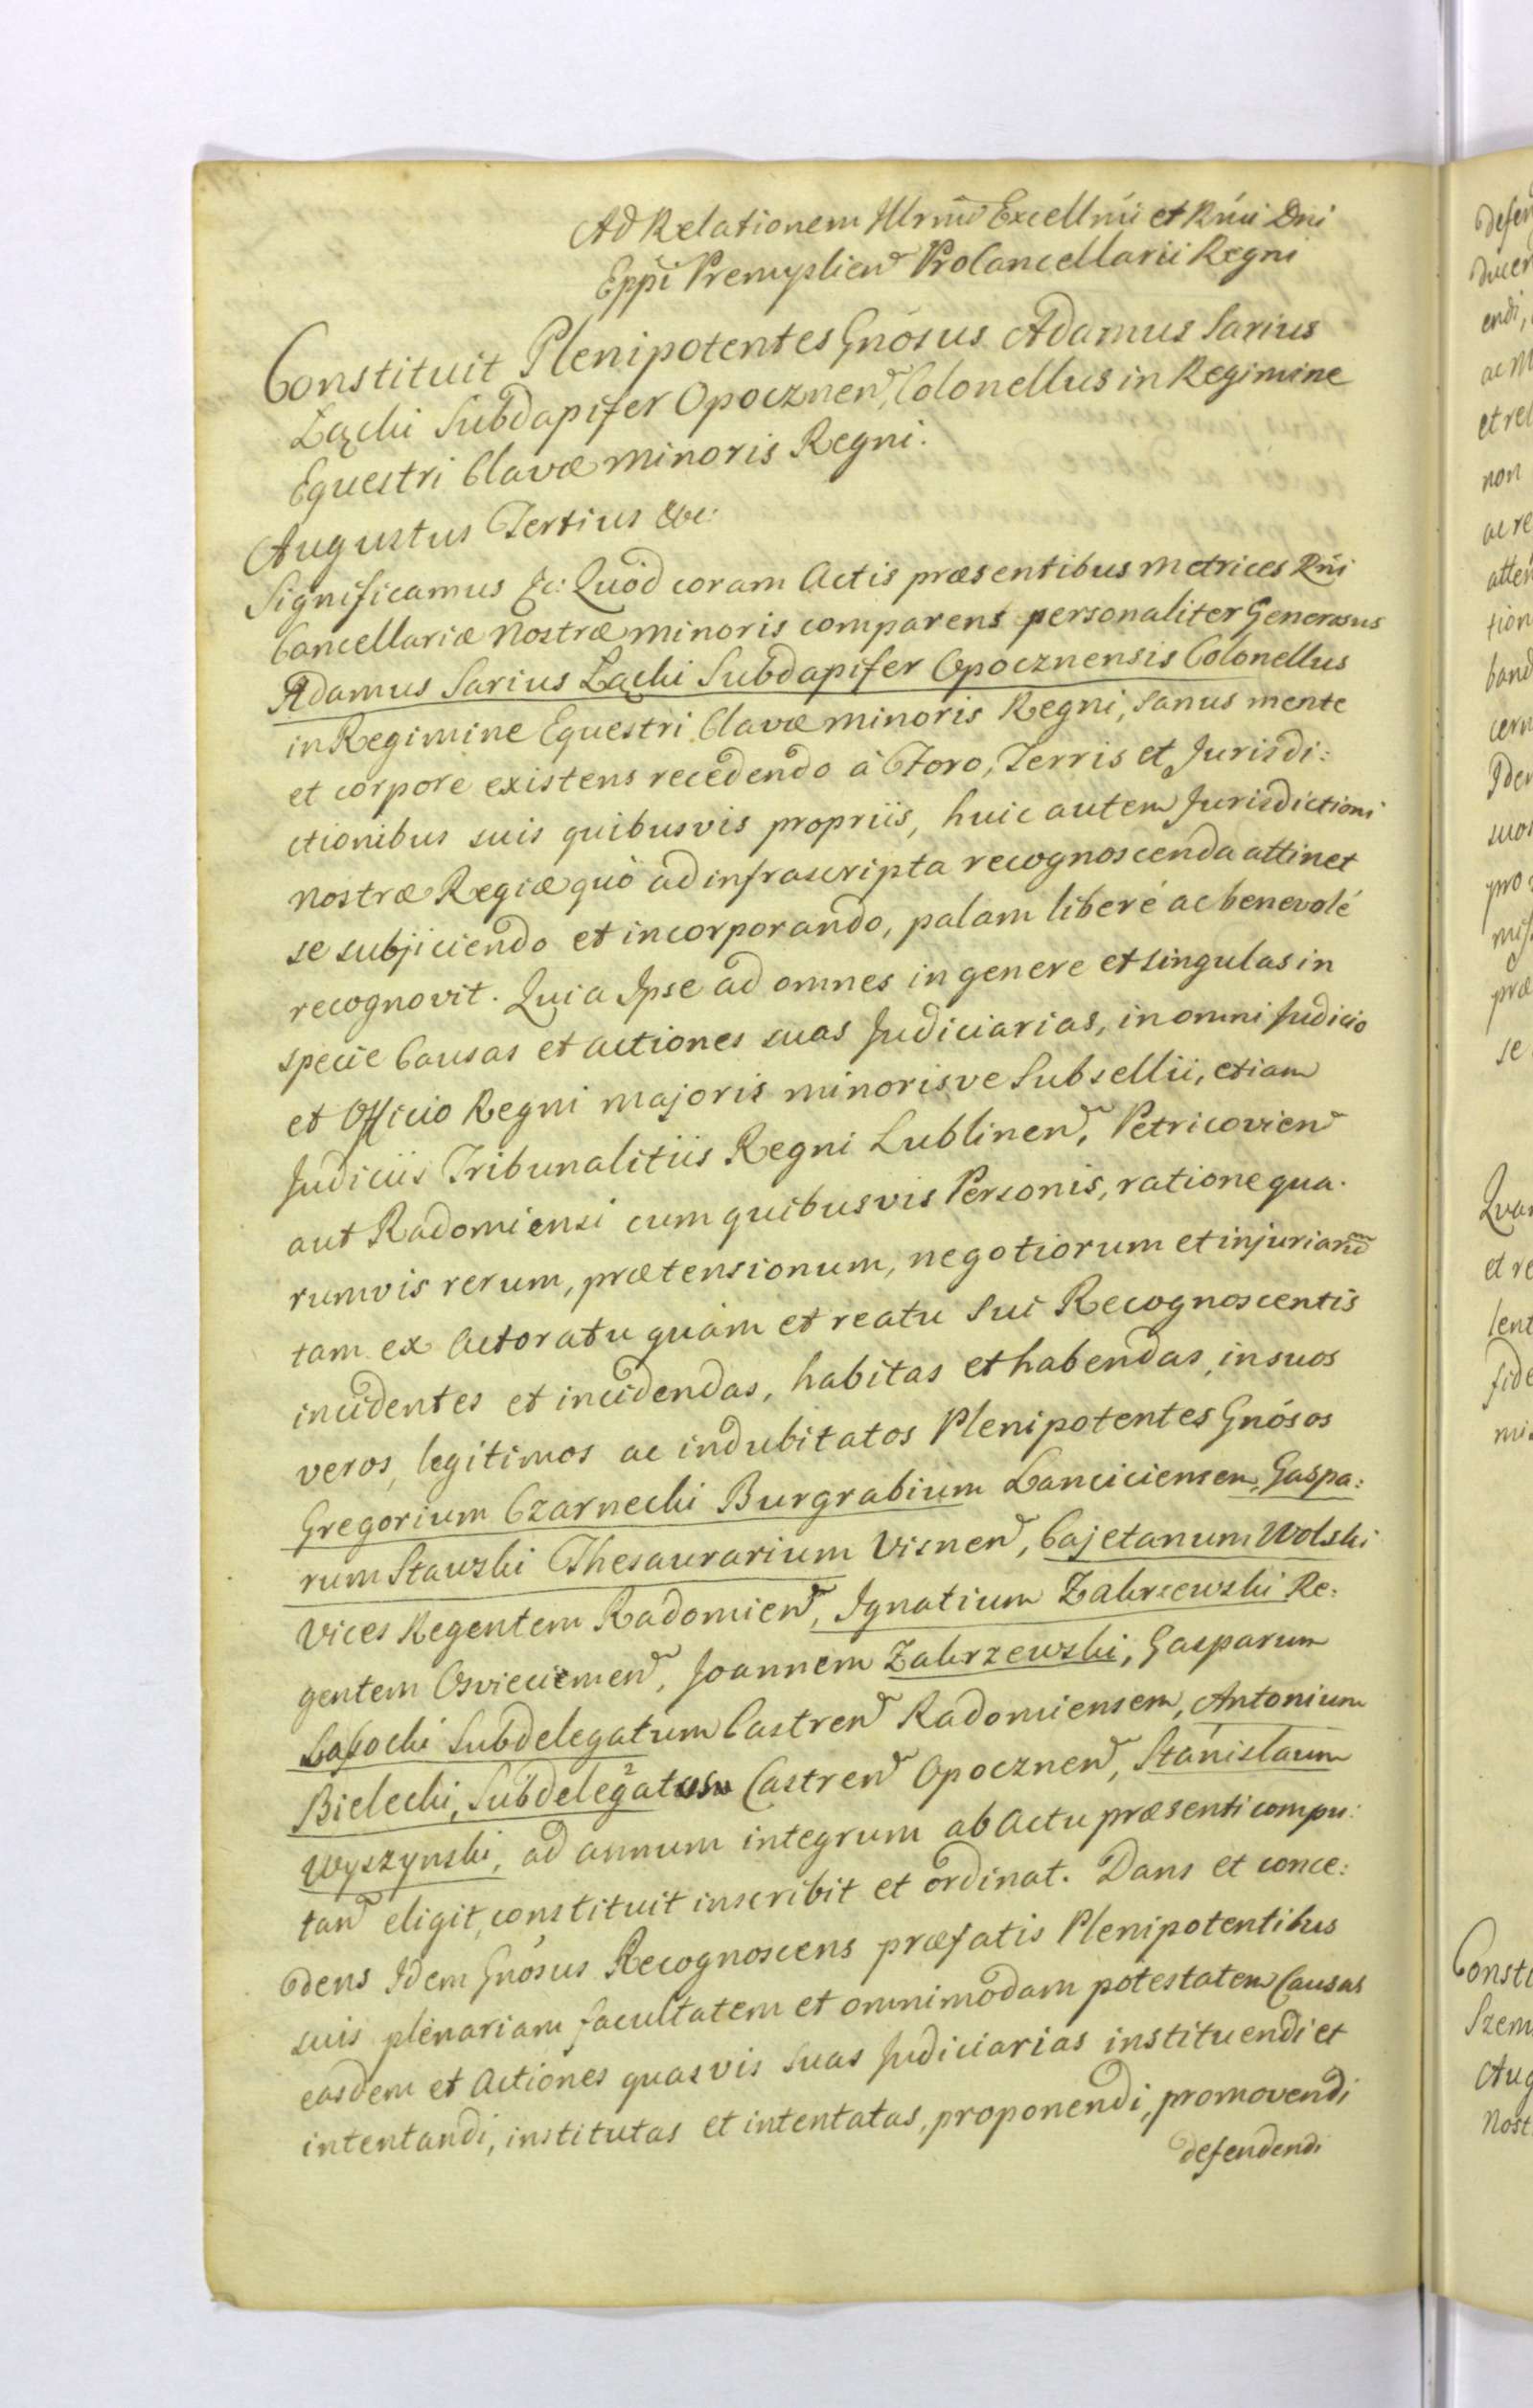 Ad Relationem Illrmi Excellmi et Rmi Dni
Eppi Premyslien Procancellarii Regni
Constituit Plenipotentes Gnosus Adamus Sarius
Łącki Subdapifer Opocznen, Colonellus in Regimine
Equestri Clavæ minoris Regni.
Augustus Tertius &c:
Significamus &c: Quod coram Actis præsentibus Metrices Rni
Cancellariæ Nostræ minoris comparens personaliter Generosus
Adamus Sarius Łącki Subdapifer Opocznensis Colonellus
in Regimine Equestri Clavæ minoris Regni, sanus mente
et corpore existens recedendo à Foro, Terris et Jurisdi:
ctionibus suis quibusvis propriis, huic autem Jurisdictioni
Nostræ Regiæ quò ad infrascripta recognoscenda attinet
se subjiciendo et incorporando, palam liberé ac benevolé
recognovit. Quia Ipse ad omnes in genere et singulas in
specie Causas et actiones suas Judiciarias, in omni Judicio
et Officio Regni majoris minorisve Subsellii, etiam
Judiciis Tribunalitiis Regni Lublinen, Petricovien
aut Radomiensi cum quibusvis Personis, ratione qua.
rumvis rerum, prætensionum, negotiorum et injuriarum
tam ex Actoratu quàm et reatu Sui Recognoscentis
incidentes et incidendas, habitas et habendas, in suos
veros, legitimos ac indubitatos Plenipotentes Gnósos
Gregorium Czarnecki Burgrabium Lanciciensen, Gaspa:
rum Stawski Thesaurarium Visnen, Cajetanum Wolski
Vices Regentem Radomien, Ignatium Zakrzewski Re:
gentem Osvieciemen, Joannem Zakrzewski, Gasparum
Łasocki Subdelegatum Castren Radomiensem, Antonium
Bielecki, Subdelegatum Castren Opocznen, Stanislaum
Wyszynski, ad annum integrum ab Actu præsenti compu:
tan eligit, constituit inscribit et ordinat. Dans et conce:
dens Idem Gnósus Recognoscens præfatis Plenipotentibus
suis plenariam facultatem et omnimodam potestatem Causas
easdem et Actiones quasvis suas Judiciarias instituendi et
intentandi, institutas et intentatas, proponendi, promovendi
defendendi